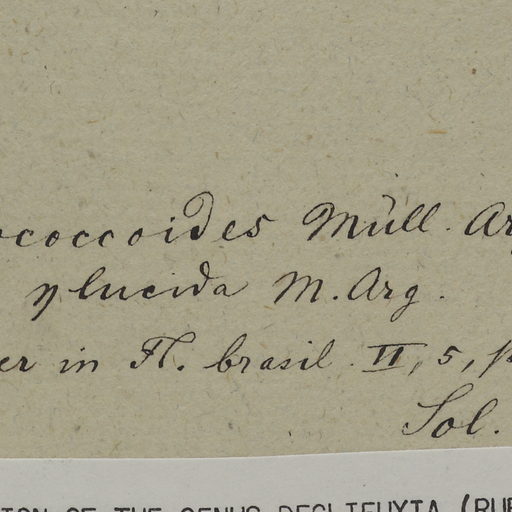 ococcoides Müll. Ar
η lucida M. Arg.
er in Fl. brasil. II, 5, p
Sol.
ION OF THE GENUS DEGLIEUXIA (RUB